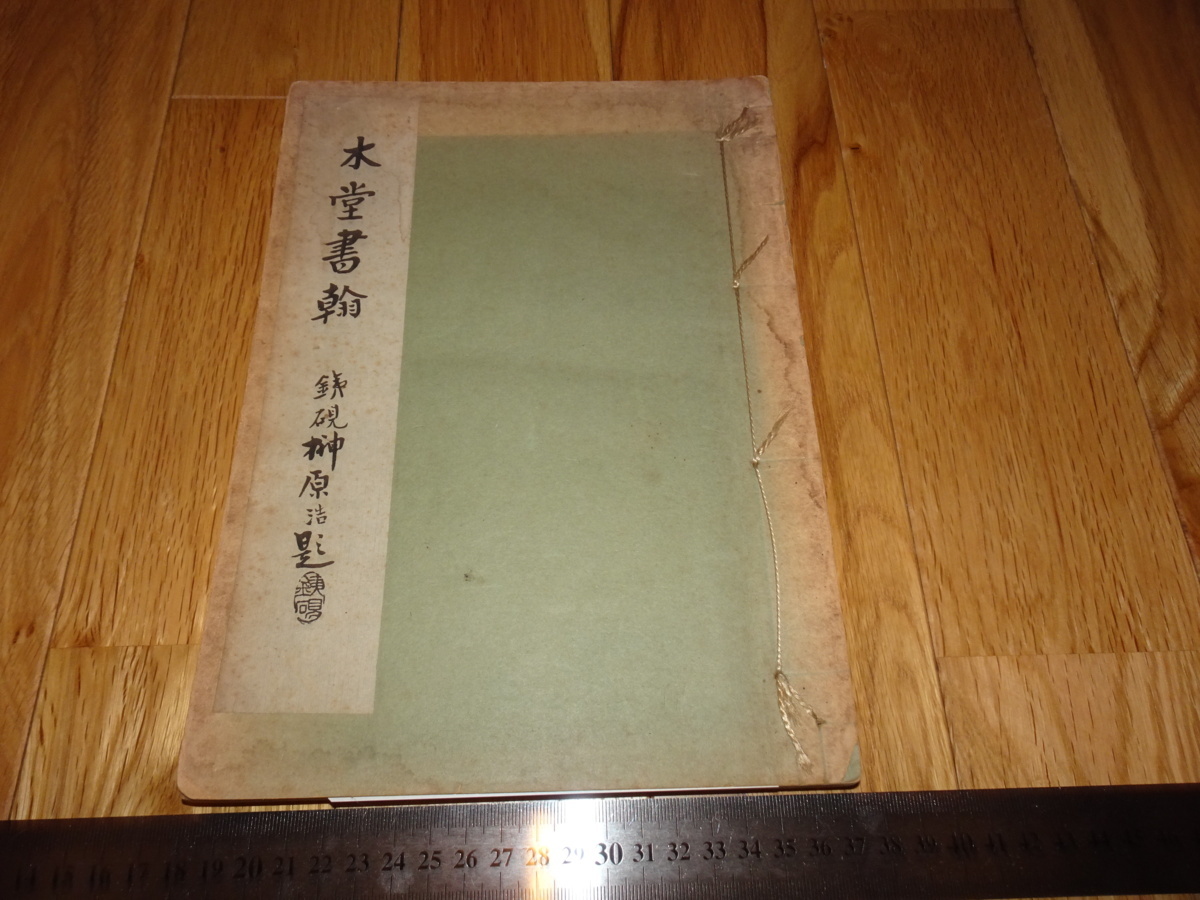 木堂書翰
銕硯榊原浩題
銕硯
14 15 16 17 18 19 20 21 22 23 24 25 26 27 28 29 30 31 32 33 34 35 36 37 38 39 40 41 42 43 44 45